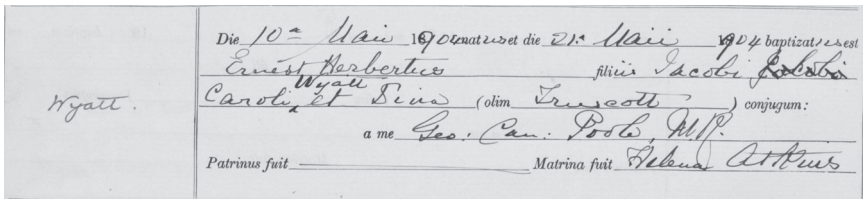 Die 10a Maii 1904 natus et die 21a Maii 1904 baptizatus est
Ernest Herbertus filius Jacobi
Wyatt
Wyatt. Caroli et Dina (olim Truscott) conjugum:
a me Geo: Can: Poole, M.R.
Patrinus fuit Matrina fuit Helena Atkins